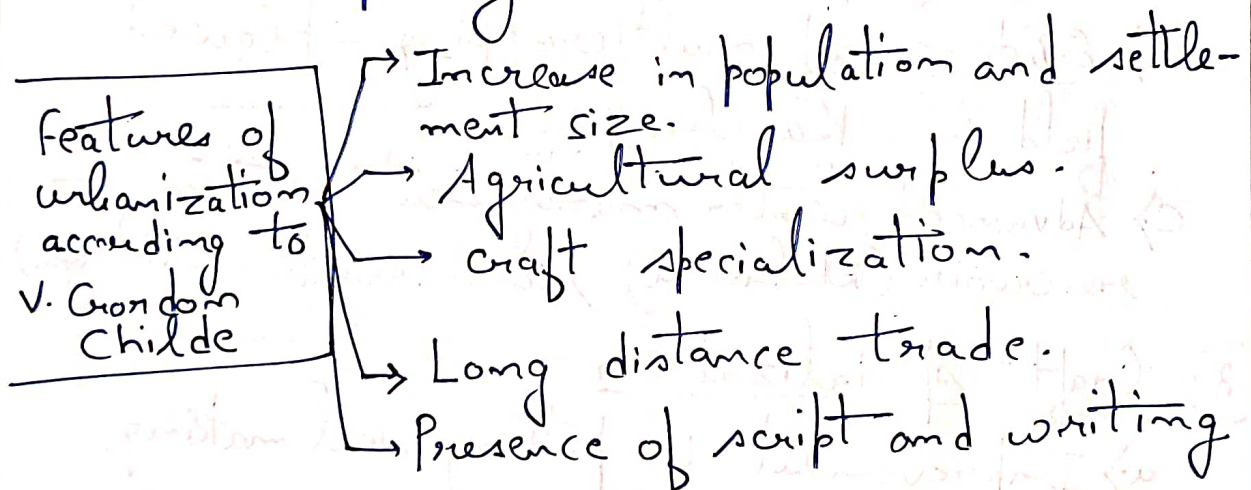 Features of
urbanization
according to
V. Gordon
Childe
Increase in population and settle-
ment size.
Agricultural surplus.
craft specialization.
Long distance trade.
Presence of script and writing